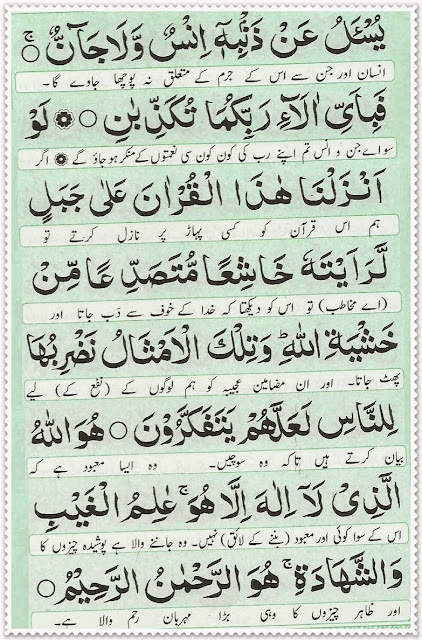 يُسْـَٔلُ عَنْ ذَنْۢبِهٖٓ اِنْسٌ وَّلَا جَآنٌّ ۚ ○
انسان اور جن سے اس کے جرم کے متعلق نہ پوچھا جاوے گا۔
فَبِاَيِّ اٰلَآءِ رَبِّكُمَا تُكَذِّبٰنِ ○ ۞ لَوْ
سو اے جن و انس تم اپنے رب کی کون کون سی نعمتوں کے منکر ہو جاؤ گے ۞ اگر
اَنْزَلْنَا هٰذَا الْقُرْاٰنَ عَلٰى جَبَلٍ
ہم اس قرآن کو کسی پہاڑ پر نازل کرتے تو
لَّرَاَيْتَهٗ خَاشِعًا مُّتَصَدِّعًا مِّنْ
(اے مخاطب) تو اس کو دیکھتا کہ خدا کے خوف سے دَب جاتا اور
خَشْيَةِ اللهِ ؕ وَتِلْكَ الْاَمْثَالُ نَضْرِبُهَا
پھٹ جاتا۔ اور ان مضامین عجیبہ کو ہم لوگوں کے (نفع کے) لیے
لِلنَّاسِ لَعَلَّهُمْ يَتَفَكَّرُوْنَ ○ هُوَ اللهُ
بیان کرتے ہیں تاکہ وہ سوچیں۔ وہ ایسا معبود ہے کہ
الَّذِيْ لَآ اِلٰهَ اِلَّا هُوَ ۚ عٰلِمُ الْغَيْبِ
اس کے سوا کوئی اور معبود (بننے کے لائق) نہیں۔ وہ جاننے والا ہے پوشیدہ چیزوں کا
وَالشَّهَادَةِ ۚ هُوَ الرَّحْمٰنُ الرَّحِيْمُ ○
اور ظاہر چیزوں کا وہی بڑا مہربان رحم والا ہے۔